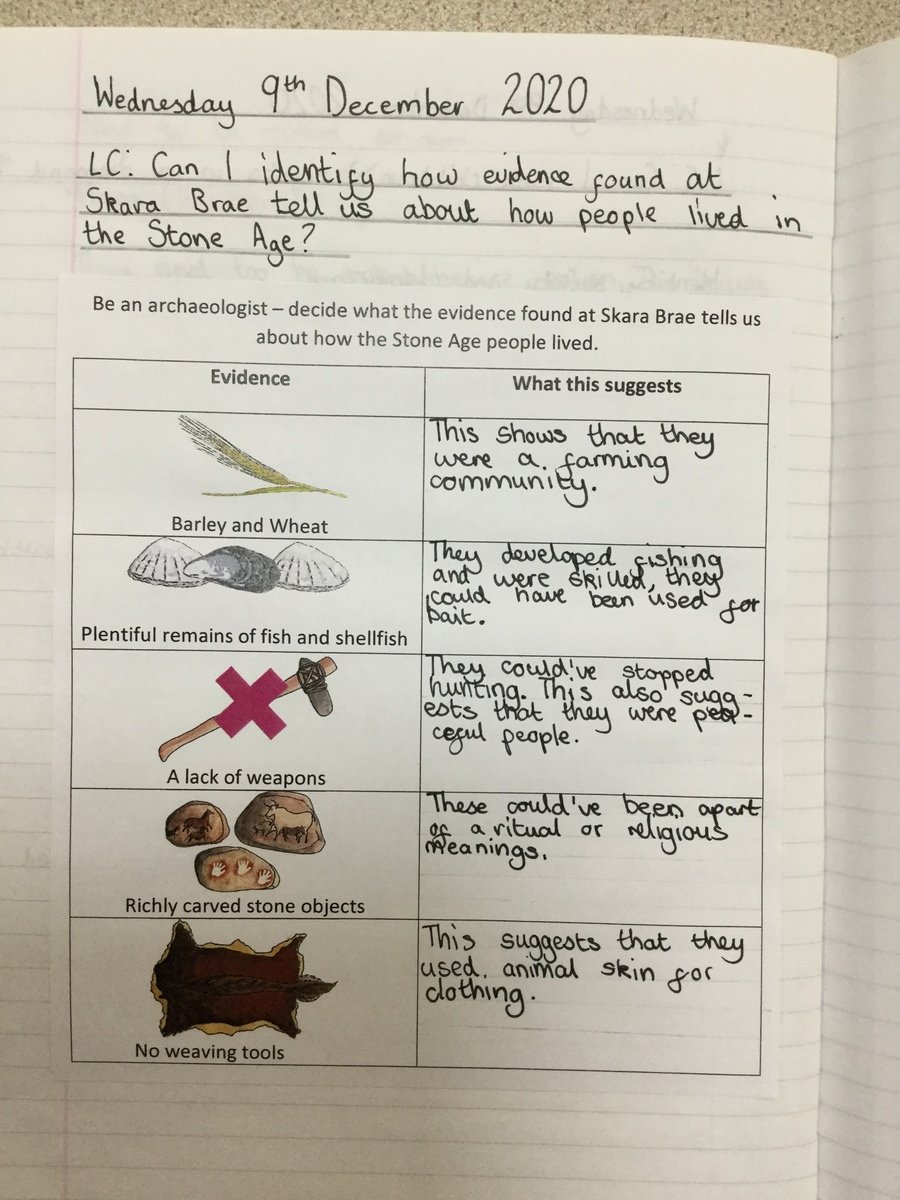 Wednesday 9th December 2020
LC: Can I identify how evidence found at
Skara Brae tell us about how people lived in
the Stone Age?
Be an archaeologist – decide what the evidence found at Skara Brae tells us
about how the Stone Age people lived.
Evidence
What this suggests
Barley and Wheat
This shows that they
were a farming
community.
Plentiful remains of fish and shellfish
They developed fishing
and were skilled, they
could have been used for
bait.
A lack of weapons
They could've stopped
hunting. This also sugg-
ests that they were pea-
ceful people.
Richly carved stone objects
These could've been apart
of a ritual or religious
meanings.
No weaving tools
This suggests that they
used animal skin for
clothing.